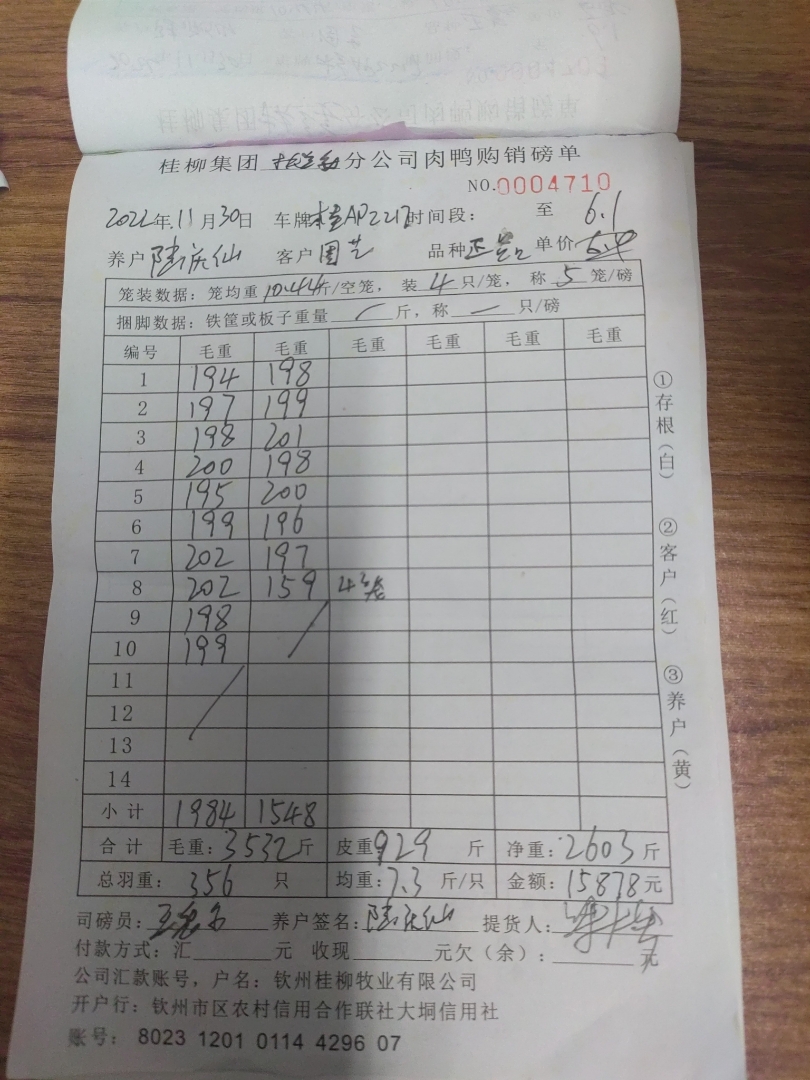 桂柳集团 分公司肉鸭购销磅单
NO.0004710
2022年11月30日 车牌桂AP2217时间段: 至 6.1
养户陆庆仙 客户国艺 品种 单价5.4
笼装数据: 笼均重10.44斤/空笼, 装4只/笼, 称5笼/磅
捆脚数据: 铁筐或板子重量 / 斤, 称 — 只/磅
编号 毛重 毛重 毛重 毛重 毛重 毛重
1 194 198
2 197 199
3 198 201
4 200 198
5 195 200
6 199 196
7 202 197
8 202 159 4笼
9 198
10 199
11
12
13
14
小计 1984 1548
合计 毛重:3532斤 皮重929斤 净重:2603斤
总羽重: 356 只 均重:7.3斤/只 金额:15878元
司磅员: 养户签名:陆庆仙 提货人:
付款方式:汇 元 收现 元欠(余): 元
公司汇款账号, 户名: 钦州桂柳牧业有限公司
开户行: 钦州市区农村信用合作联社大垌信用社
账号: 8023 1201 0114 4296 07
①存根(白)
②客户(红)
③养户(黄)